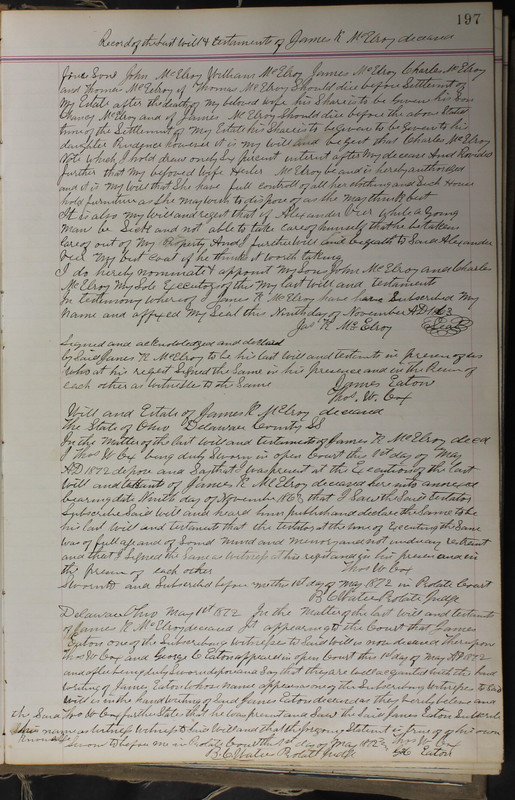 197
Record of the Last Will & testament of James K McElroy deceased
five Sons John McElroy William McElroy James McElroy Charles McElroy
and Thomas McElroy if Thomas McElroy Should die before Settlement of
My Estate after the death of my beloved wife his Share is to be given his Son
McElroy and if James McElroy Should die before the above Stated
time of the Settlement of My Estate his Share is to be given to be given to his
daughter Prudence however it is my will and regest that Charles McElroy
Note which I hold draw only Six percent interest after My decease And Provided
further that My beloved Wife Hester McElroy be and is hereby authorized
and it is My will that She have full controll of all her clothing and Such House
hold furniture as She may wish to dispose of as She may think best
It is also my will and regest that if Alexander Veer While a Young
Man be Sick and not able to take care of himself that he be taken
Care of out of My Property And I further will and bequeath to Said Alexander
Veer My best Coat if he thinks it worth taking
I do hereby nominate & appoint My Sons John McElroy and Charles
McElroy My Sole Executors of this My last will and testament
In testimony whereof I James K McElroy have Subscribed My
Name and affixed My Seal this Ninth day of November AD 1863
Jas K McElroy Seal
Signed and acknowledged and declared
by Said James K McElroy to be his last will and testament in presence of us
who at his regest Signed the Same in his presence and in the Presence of
each other as witness to the Same
James Eaton
Thos. W. Cox
Will and Estate of James K McElroy deceased
The State of Ohio Delaware County SS
In the Matter of the last Will and testament of James K McElroy deceased
I Thos W Cox being duly Sworn in open Court the 1st day of May
AD 1872 depose and Say that I was present at the Execution of the last
Will and testament of James K McElroy deceased here unto annexed
bearing date Ninth day of November 1863 that I Saw the Said testator
Subscribe Said Will and heard him publish and declare the Same to be
his last Will and testament that the testator at the time of Executing the Same
was of full age and of Sound Mind and Memory and not under any restraint
and that I Signed the Same as Witness at his regest and in his presence and in
the presence of each other
Thos W Cox
Sworn to and Subscribed before me this 1st day of May 1872 in Probate Court
B. C. Waters Probate Judge
Delaware Ohio May 1st 1872 In the Matter of the last will and testament
of James K McElroy deceased It appearing to the Court that James
Eaton one of the Subscribing witnesses to Said Will is now deceased Thereupon
Thos W Cox and George C Eaton appeared in open Court this 1st day of May AD 1872
and after being duly Sworn depose and Say that they are well acquainted with the hand
writing of James Eaton whose name appears as one of the Subscribing witnesses to Said
will is in the hand writing of Said James Eaton deceased as they verily believe and
the Said Thos W Cox further States that he was present and Saw the Said James Eaton Subscribe
his name as witness to Said Will and that the foregoing Statement is true of his own
Knowledge
Sworn to before me in Probate Court this 1st day of May 1872
Thos W Cox
B. C. Waters Probate Judge
Eaton